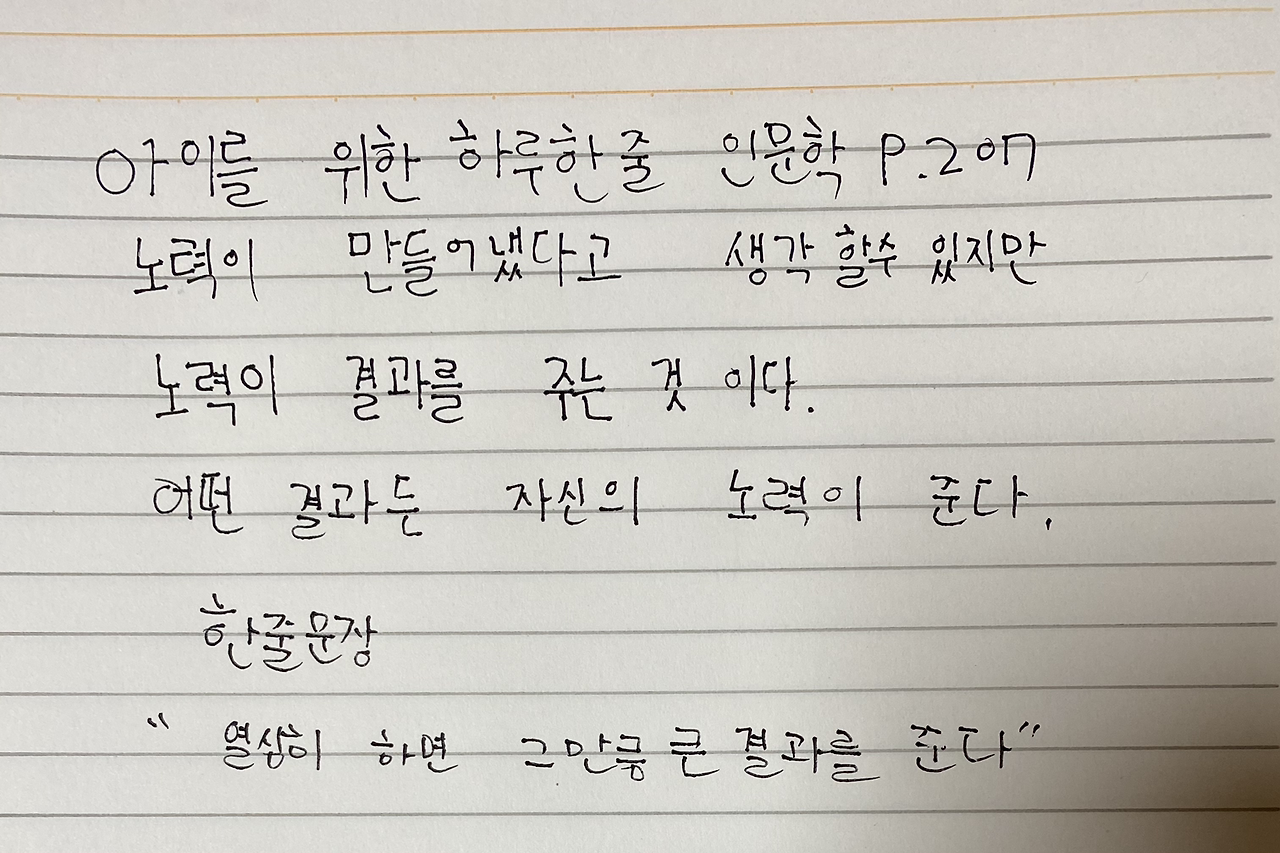 아이를 위한 하루한줄 인문학 P.207
노력이 만들어냈다고 생각 할수 있지만
노력이 결과를 주는 것 이다.
어떤 결과든 자신의 노력이 준다.
한줄문장
“ 열심히 하면 그만큼 큰 결과를 준다”